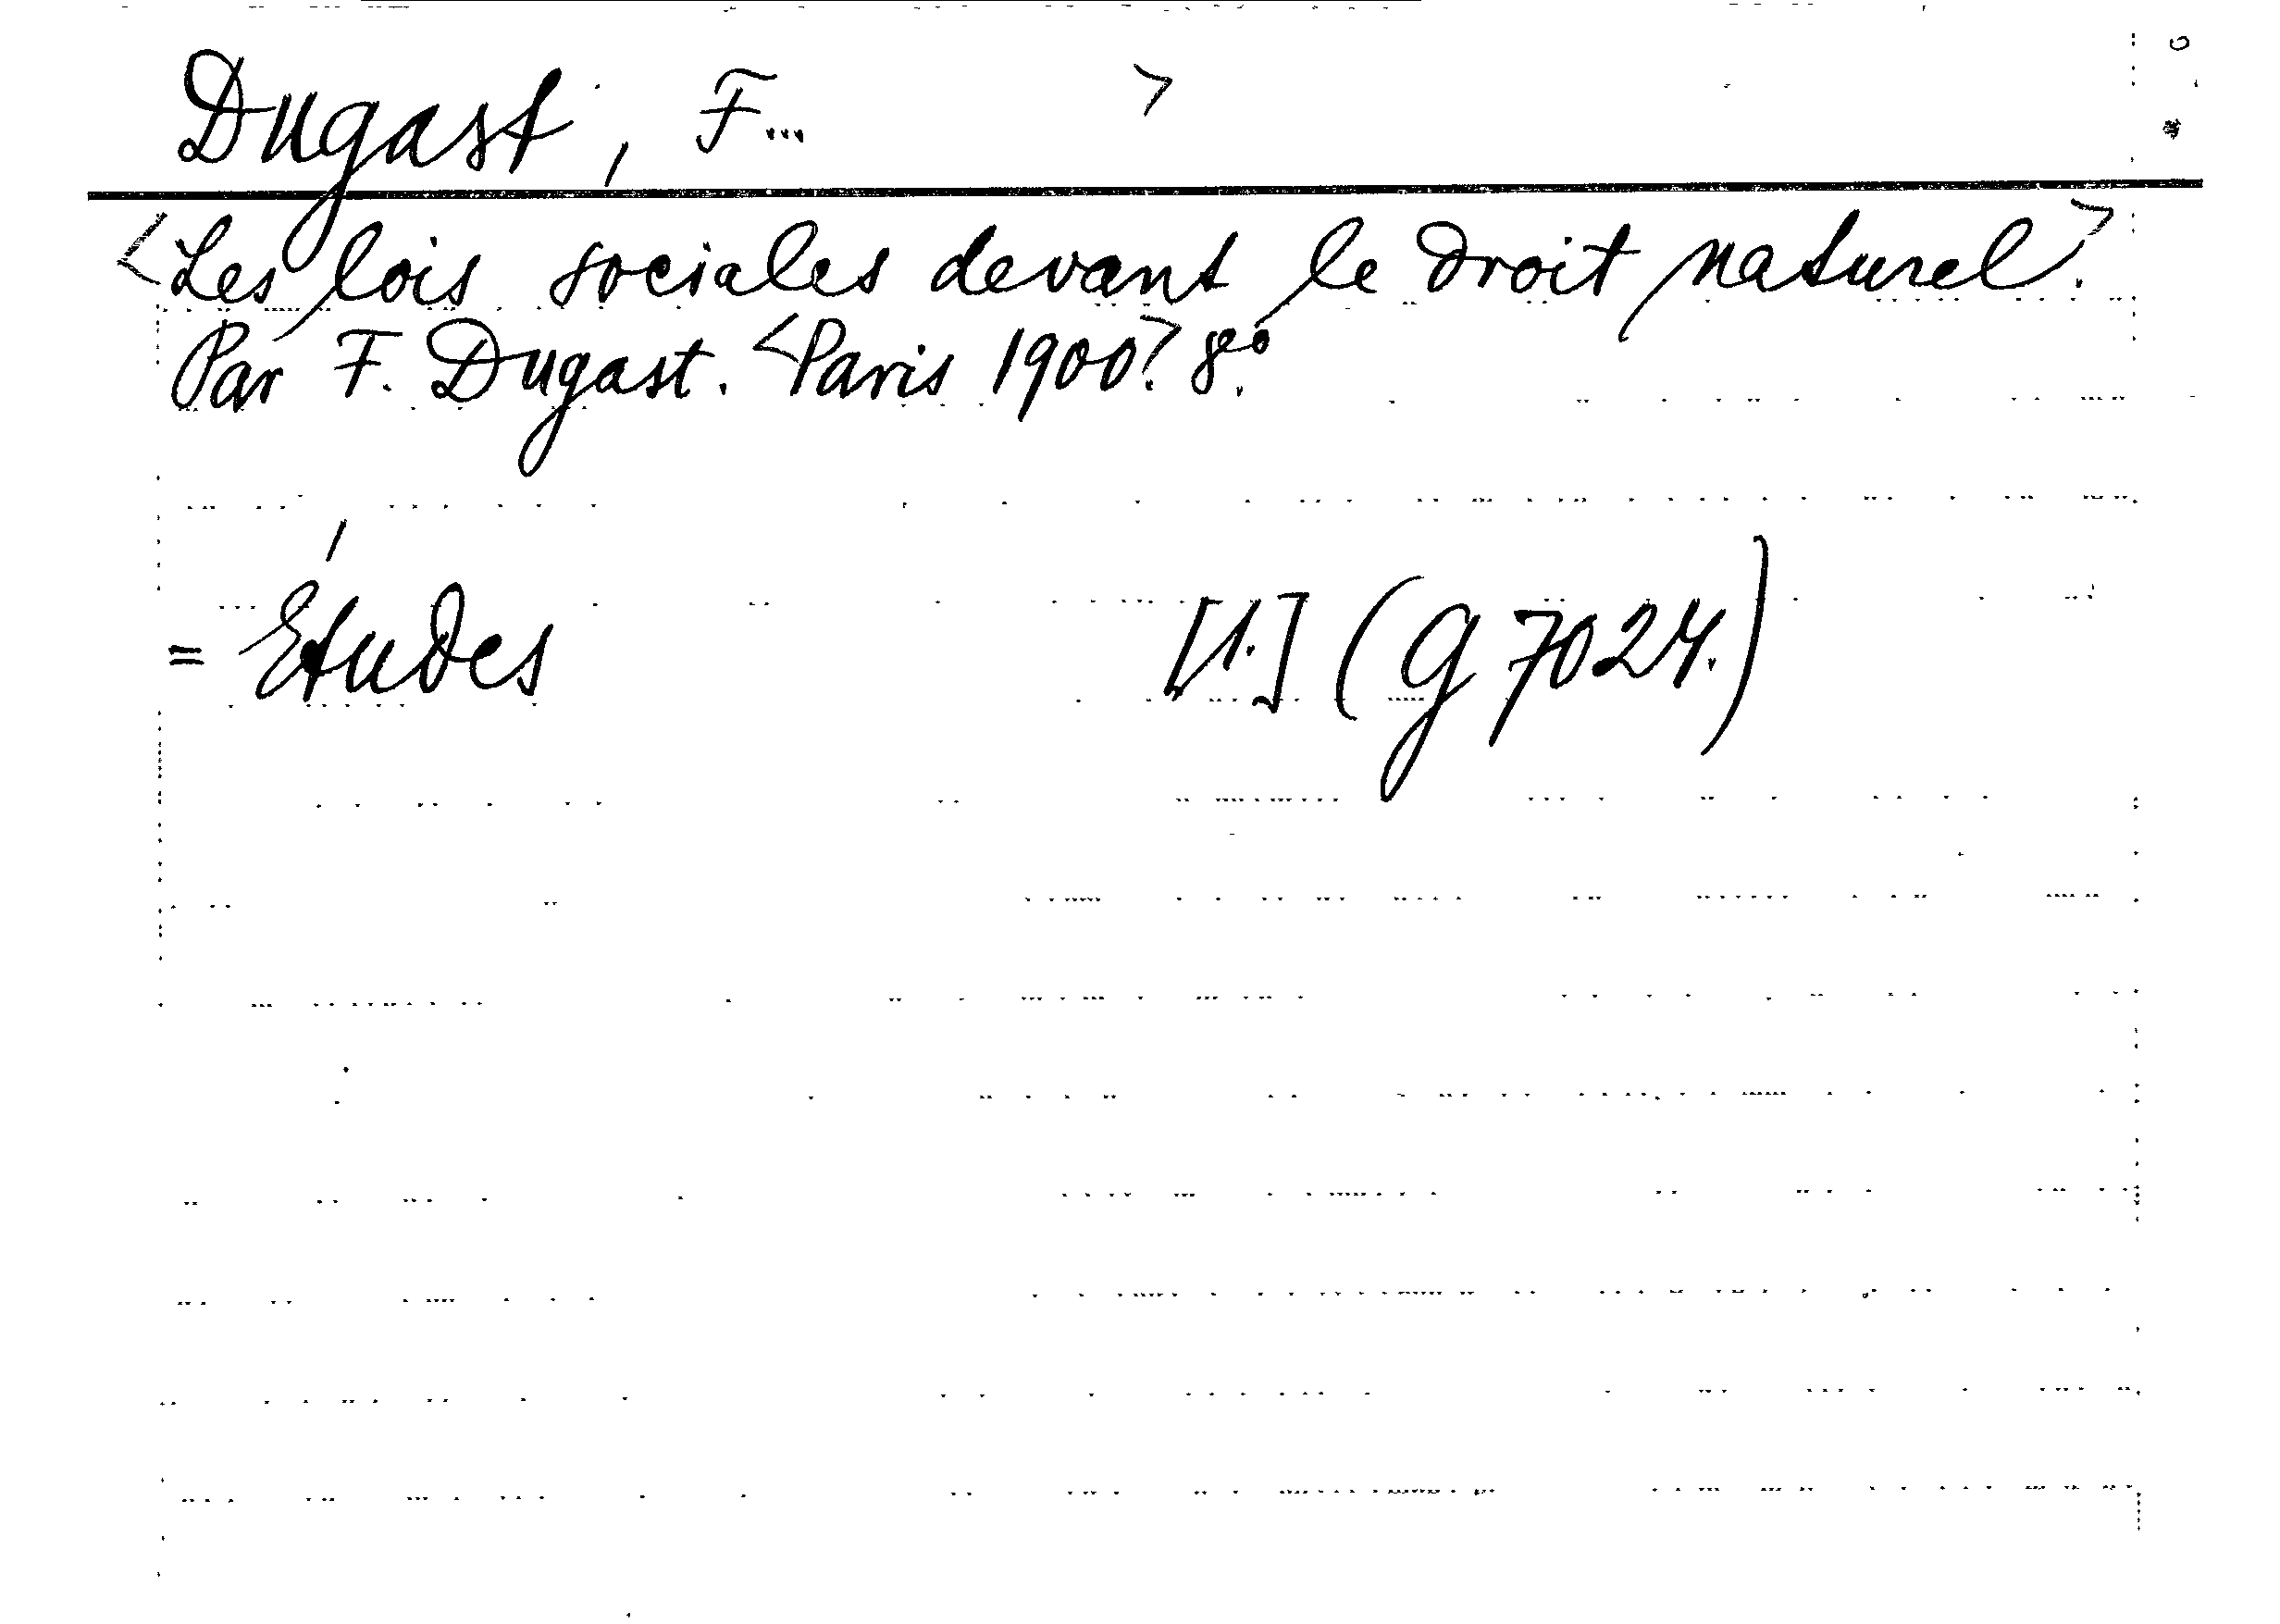 Dugast, F... >
<Les lois sociales devant le droit naturel.>
Par F. Dugast. <Paris 1900>. 8°.
= Études [1.] (G 7024.)